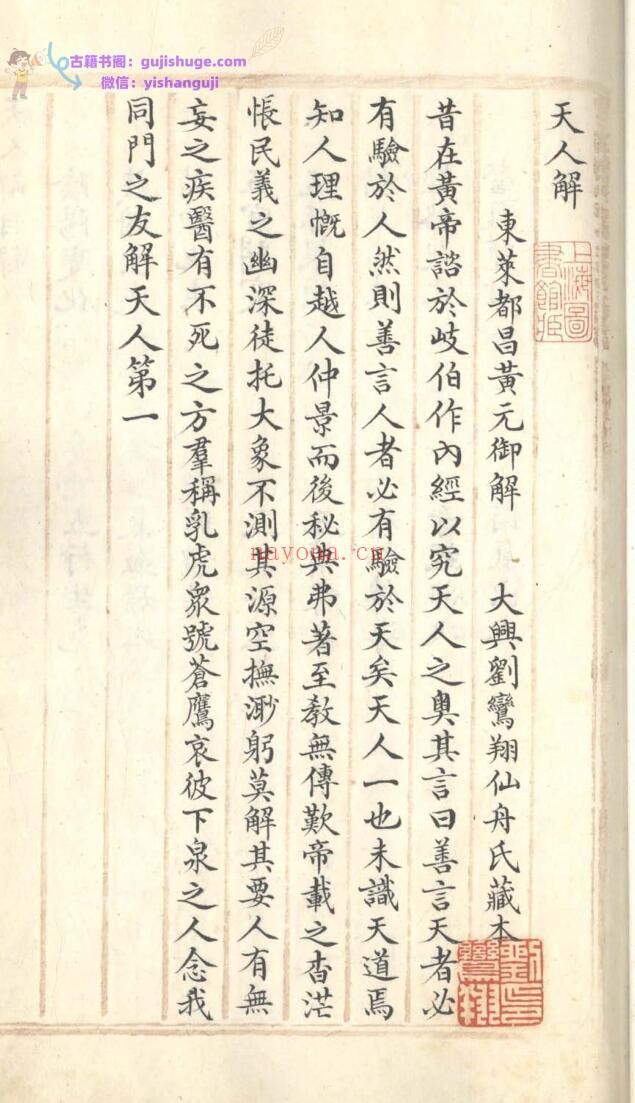 古籍书阁：gujishuge.com
微信：yishanguji
天人解
東萊都昌黃元御解 大興劉鸞翔仙舟氏藏本
昔在黃帝諮於岐伯作內經以究天人之奧其言曰善言天者必
有驗於人然則善言人者必有驗於天矣天人一也未識天道焉
知人理慨自越人仲景而後秘典弗著至敎無傳歎帝載之杳茫
悵民義之幽深徒托大象不測其源空撫渺躬莫解其要人有無
妄之疾醫有不死之方羣稱乳虎衆號蒼鷹哀彼下泉之人念我
同門之友解天人第一
上海圖書館藏
nayona.cn